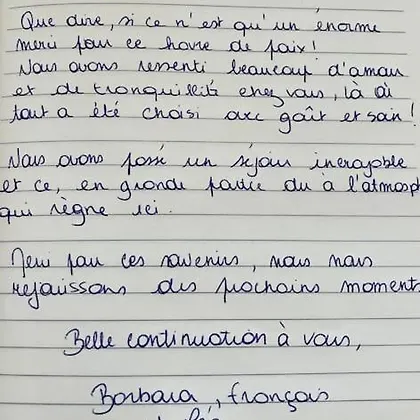 Que dire, si ce n'est qu'un énorme
merci pour ce havre de paix!
Nous avons ressenti beaucoup d'amour
et de tranquillité chez vous, là où
tout a été choisi avec goût et soin!
Nous avons passé un séjour incroyable
et ce, en grande partie dû à l'atmosp
qui règne ici.
Merci pour ces souvenirs, nous nous
rejouissons des prochains moment
Belle continuation à vous,
Barbara, françois